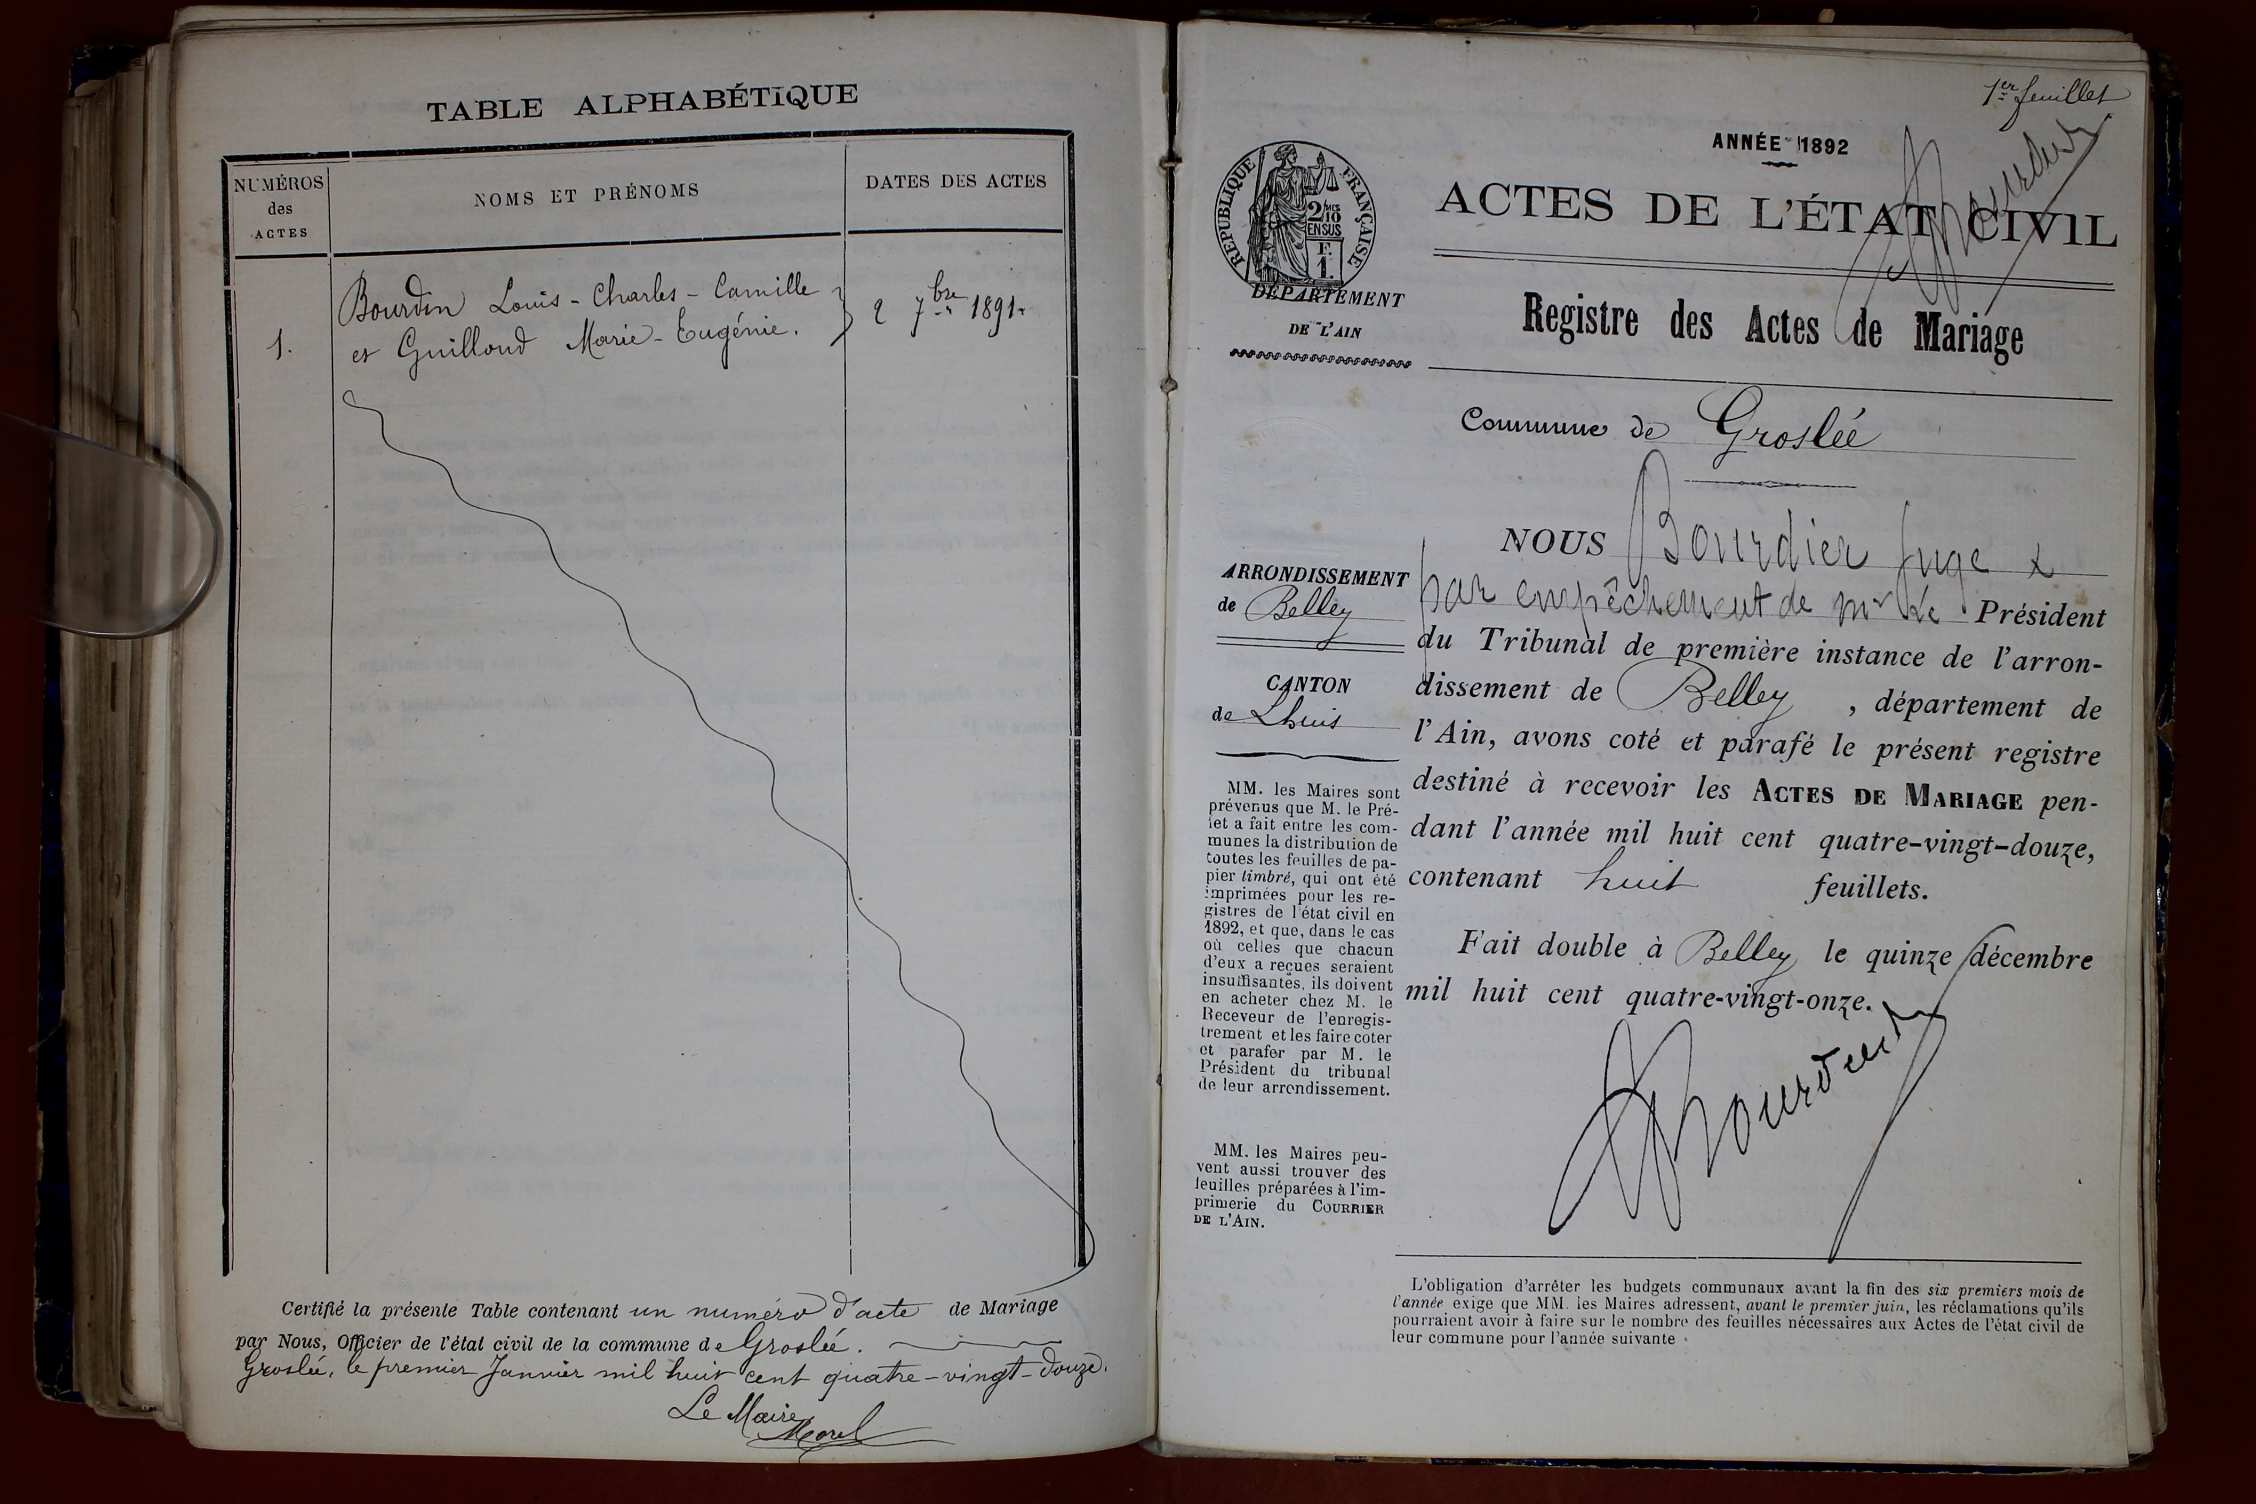 TABLE ALPHABÉTIQUE
NUMÉROS
des
ACTES
NOMS ET PRÉNOMS
DATES DES ACTES
1.
Bourdin Louis - Charles - Camille
et Guilloud Marie - Eugénie.
2 7bre 1891.
Certifié la présente Table contenant un numéro d'acte de Mariage
par Nous, Officier de l'état civil de la commune de Groslée.
Groslée, le premier Janvier mil huit cent quatre-vingt-douze.
Le Maire
Morel
1er feuillet
ANNÉE 1892
RÉPUBLIQUE FRANÇAISE
2/10
EN SUS
F.
1.
ACTES DE L'ÉTAT CIVIL
DÉPARTEMENT
DE L'AIN
Registre des Actes de Mariage
Commune de Groslée
ARRONDISSEMENT
de Belley
CANTON
de Lhuis
MM. les Maires sont
prévenus que M. le Pré-
fet a fait entre les com-
munes la distribution de
toutes les feuilles de pa-
pier timbré, qui ont été
imprimées pour les re-
gistres de l'état civil en
1892, et que, dans le cas
où celles que chacun
d'eux a reçues seraient
insuffisantes, ils doivent
en acheter chez M. le
Receveur de l'enregis-
trement et les faire coter
et parafer par M. le
Président du tribunal
de leur arrondissement.
MM. les Maires peu-
vent aussi trouver des
feuilles préparées à l'im-
primerie du COURRIER
DE L'AIN.
NOUS Bourdier Juge
par empêchement de Mr Le Président
du Tribunal de première instance de l'arron-
dissement de Belley, département de
l'Ain, avons coté et parafé le présent registre
destiné à recevoir les ACTES DE MARIAGE pen-
dant l'année mil huit cent quatre-vingt-douze,
contenant huit feuillets.
Fait double à Belley le quinze décembre
mil huit cent quatre-vingt-onze.
L'obligation d'arrêter les budgets communaux avant la fin des six premiers mois de
l'année exige que MM. les Maires adressent, avant le premier juin, les réclamations qu'ils
pourraient avoir à faire sur le nombre des feuilles nécessaires aux Actes de l'état civil de
leur commune pour l'année suivante.